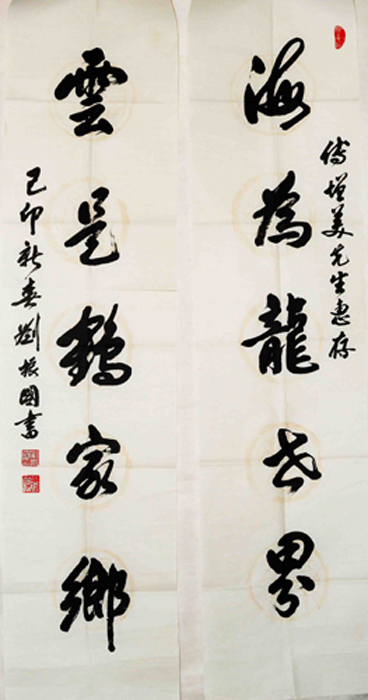 傅增美先生惠存
海為龍世界
雲是鶴家鄉
己卯新春劉振國書